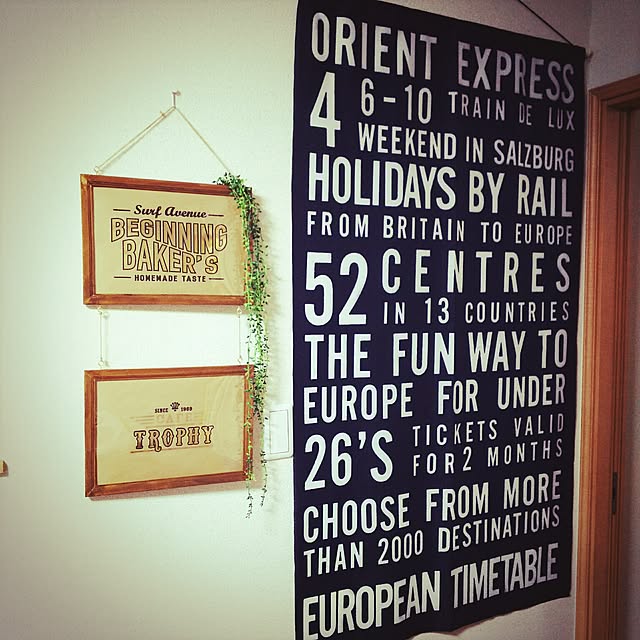 Surf Avenue
BEGINNING
BAKER'S
HOMEMADE TASTE
SINCE 1969
CAFE
TROPHY
ORIENT EXPRESS
4 6-10 TRAIN DE LUX
WEEKEND IN SALZBURG
HOLIDAYS BY RAIL
FROM BRITAIN TO EUROPE
52 CENTRES
IN 13 COUNTRIES
THE FUN WAY TO
EUROPE FOR UNDER
26'S TICKETS VALID
FOR 2 MONTHS
CHOOSE FROM MORE
THAN 2000 DESTINATIONS
EUROPEAN TIMETABLE